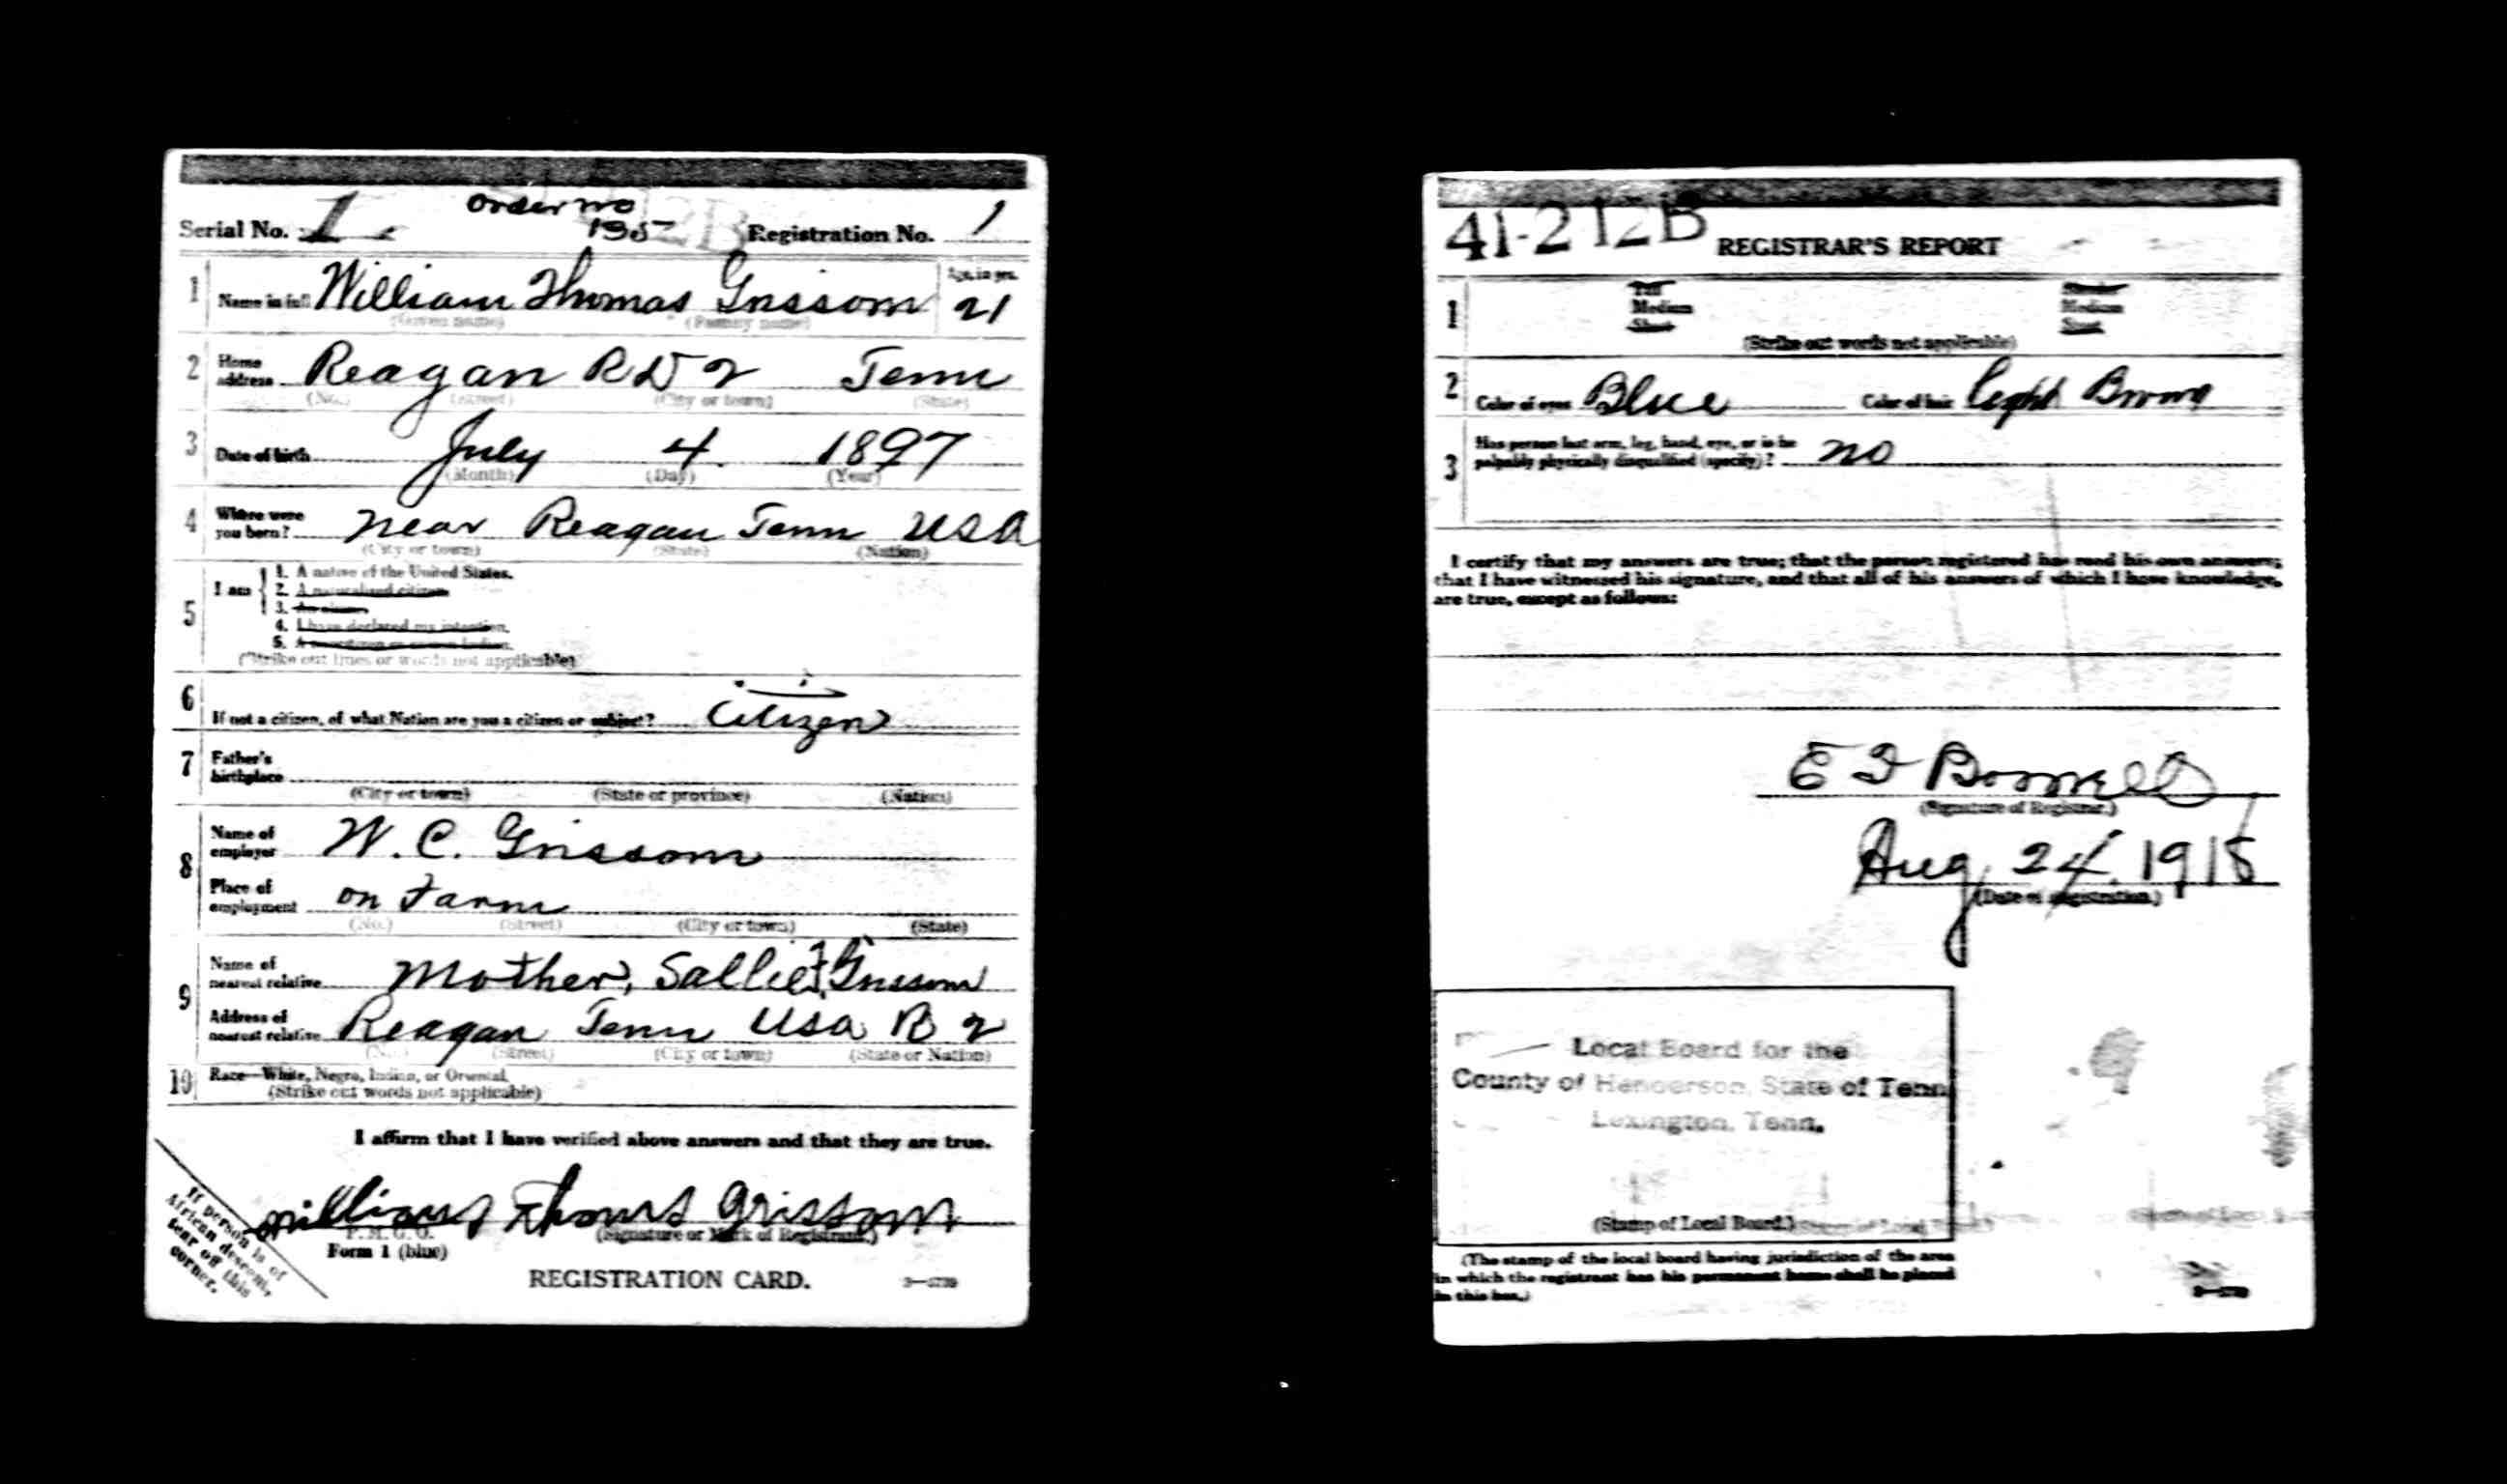 Order no
Serial No. 1 195 Registration No. 1
1 Name in full William Thomas Grissom Age, in yrs. 21
(Given name) (Family name)
2 Home address Reagan RD 2 Tenn
(No.) (Street) (City or town) (State)
3 Date of birth July 4 1897
(Month) (Day) (Year)
4 Where were you born? near Reagan Tenn USA
(City or town) (State) (Nation)
5 I am
1. A native of the United States.
2. A naturalized citizen
3. An alien
4. I have declared my intention.
5. A noncitizen or citizen Indian.
(Strike out lines or words not applicable)
6 If not a citizen, of what Nation are you a citizen or subject? Citizen
7 Father's birthplace
(City or town) (State or province) (Nation)
8 Name of employer W. C. Grissom
Place of employment on Farm
(No.) (Street) (City or town) (State)
9 Name of nearest relative Mother, Sallie F. Grissom
Address of nearest relative Reagan Tenn Usa R 2
(No.) (Street) (City or town) (State or Nation)
10 Race—White, Negro, Indian, or Oriental.
(Strike out words not applicable)
I affirm that I have verified above answers and that they are true.
William Thomas Grissom
P. M. G. O. (Signature or Mark of Registrant.)
Form 1 (blue)
REGISTRATION CARD.
If person is of
African descent,
tear off this
corner.
41-212B REGISTRAR'S REPORT
1 Tall Slender
Medium Medium
Short Stout
(Strike out words not applicable)
2 Color of eyes Blue Color of hair light Brown
3 Has person lost arm, leg, hand, eye, or is he
palpably physically disqualified (specify)? no
I certify that my answers are true; that the person registered has read his own answers;
that I have witnessed his signature, and that all of his answers of which I have knowledge,
are true, except as follows:
(Signature of Registrar.)
Aug, 24, 1918
(Date of registration.)
Local Board for the
County of Henderson, State of Tenn.
Lexington, Tenn.
(Stamp of Local Board.)
(The stamp of the local board having jurisdiction of the area
in which the registrant has his permanent home shall be placed
in this box.)